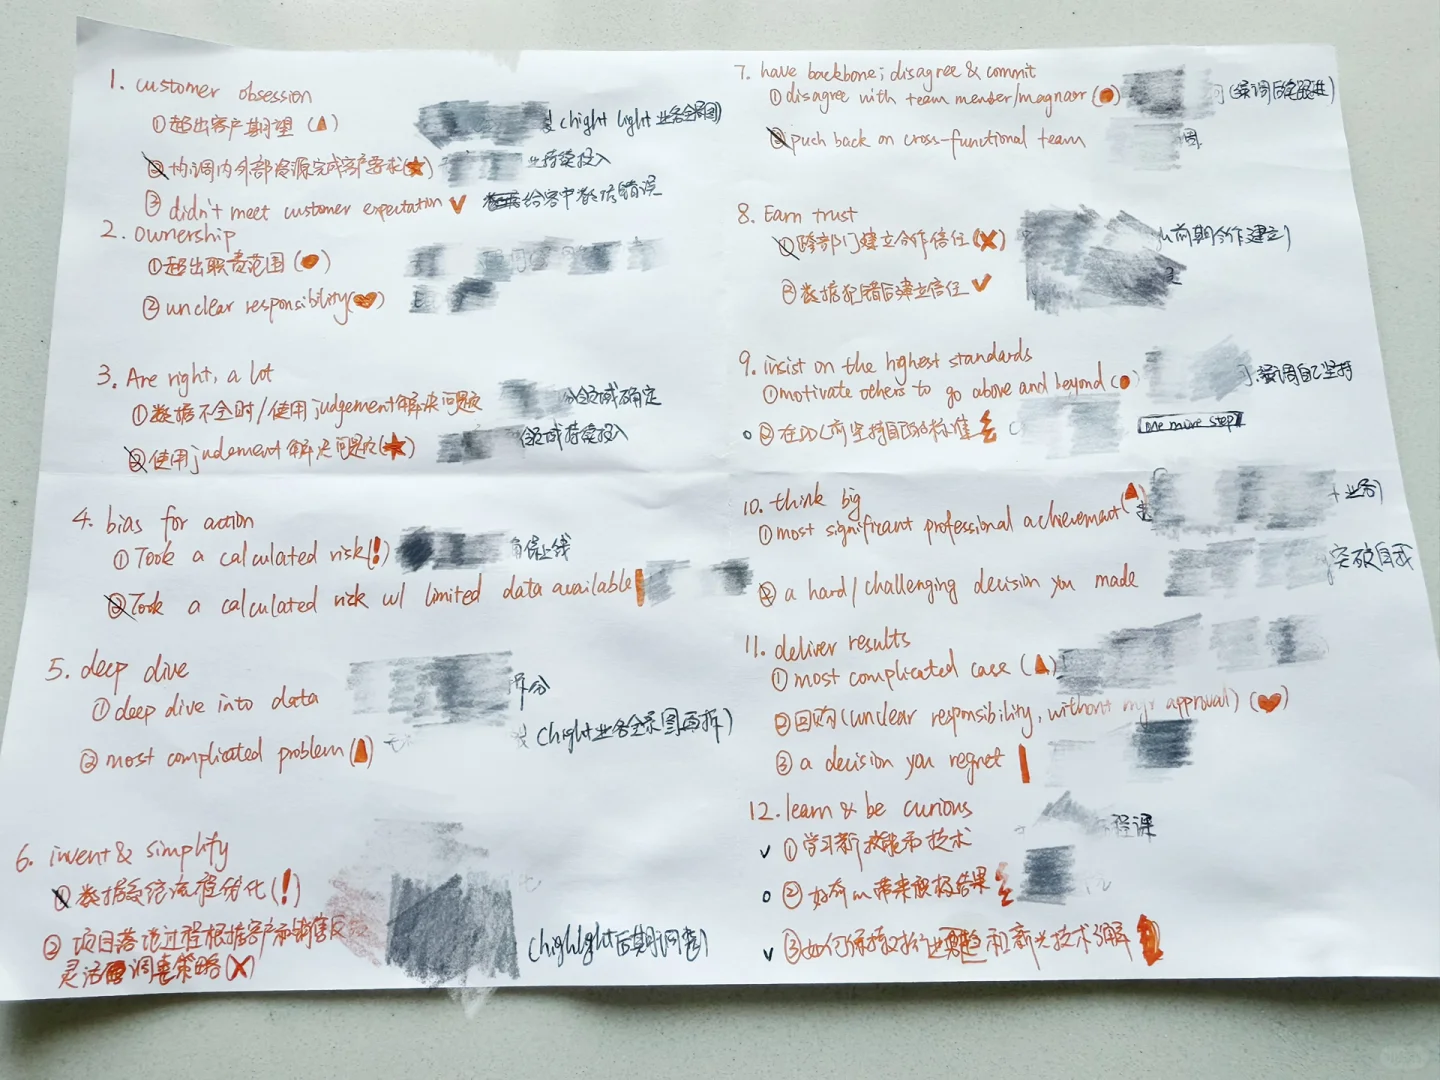 1. customer obsession
①超出客户期望(▲) (highlight 业务全景图)
②协调内外部资源完成客户要求(★) 业持续投入
③ didn't meet customer expectation ✓ 给客户数据错误
2. ownership
①超出职责范围(●)
② unclear responsibility(♥)
3. Are right, a lot
①数据不全时/使用judgement解决问题 领域确定
②使用judement解决问题(★) 领域持续投入
4. bias for action
① Took a calculated risk(!) 上线
② Took a calculated risk w/ limited data available
5. deep dive
① deep dive into data 拆分
② most complicated problem(▲) (highlight业务全景图再拆)
6. invent & simplify
① 数据系统流程优化(!)
② 项目落地过程根据客户和销售反
灵活调整策略(X) (highlight后期调整)
7. have backbone; disagree & commit
① disagree with team member/magnaor(●) (强调后续跟进)
② push back on cross-functional team 周
8. Earn trust
①跨部门建立合作信任(X) 前期合作建立)
②数据犯错后建立信任 ✓
9. insist on the highest standards
① motivate others to go above and beyond(●) 强调自己坚持
②在DDL前坚持自己的标准 one more step
10. think big
① most significant professional achievement(▲) 业务)
② a hard/challenging decision you made 突破自我
11. deliver results
① most complicated case (▲)
② 回购(unclear responsibility, without mgr approval) (♥)
③ a decision you regret
12. learn & be curious
✓ ①学习新技能和技术 程课
○ ②好奇心带来积极结果
✓ ③如何保持对行业和新兴技术了解